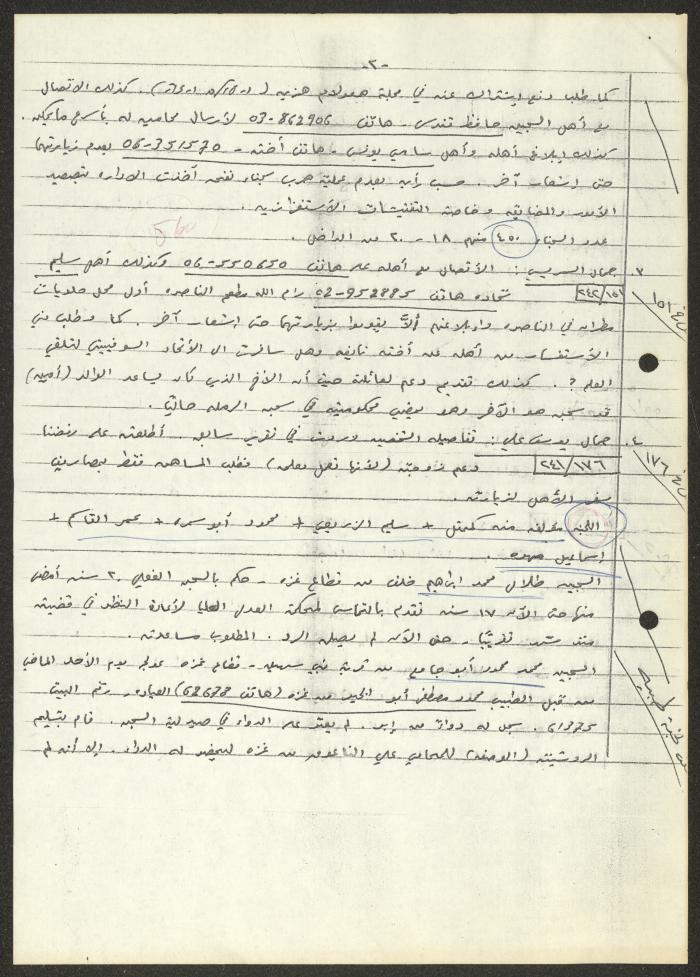 -٣-
كما طلب دفع اشتراك عنه في مجلة هعولام هزيه. كذلك الاتصال
مع أهل السجين حافظ قندس - هاتف 03-862906 لأرسال محاميه له بأسرع ما يمكن.
كذلك إبلاغ أهله وأهل سامي يونس - هاتف أخته - 06-351570 بعدم زيارتهما
حتى إشعار آخر. حسب رأيه بعدم عملية هرب سجناء نفحه أخذت الاداره تصعيد
الأمور والمضايقه وخاصة التفتيشات الأستفزازيه.
عدد السجناء ٤٥٠ منهم ١٨ - ٢٠ من الداخل.
٣. جمال السريسي: الأتصال مع أهله على هاتف 06-550650 وكذلك أهل سليم
٢٤٢/١٥١ شحاده هاتف 02-952885 رام الله مطعم الناصره أول محل حلويات
مطران في الناصره وابلاغهم ألاّ يقوموا بزيارتهما حتى إشعار آخر. كما وطلب مني
الأستفسار من أهله عن أخته نايفه وهل سافرت الى الأتحاد السوفييتي لتلقي
العلم؟. كذلك تقديم دعم لعائلته حيث أن الأخ الذي كان يساعد الوالد (أمين)
تم سجنه هو الآخر وهو يقضي محكوميته في سجن الرمله حالياً.
٤. جمال يوسف علي: تفاصيله الشخصيه وردت في تقرير سابق. أطلعته على رفضنا
٢٤١/١٧٦ دعم زوجته (لأنها تعمل معلمه) فطلب المساهمه فقط بمصاريف
سفر الأهل لزيارته.
اللجنه مؤلفه منه كممثل + سليم الزريعي + محمود أبو سمره + عمر القاسم +
إسماعيل مهره.
السجين طلال محمد ابراهيم خلف من قطاع غزه - حكم بالسجن الفعلي ٢٠ سنه أمضى
منها حتى الآن ١٧ سنه تقدم بالتماس لمحكمة العدل العليا لأعادة النظر في قضيته
منذ شهر تقريبًا - حتى الآن لم يصله الرد. المطلوب مساعدته.
السجين محمد محمود أبو جامع من قرية بني سهيله - قطاع غزه عولج يوم الأحد الماضي
من قبل الطبيب محمود مصطفى أبو الخير من غزه (هاتف 626777) العياده - رقم البيت
61375. سجل له دواءً من إبر. لم يعثر على الدواء في صيدلية السجن. قام بتسليم
الروشيته (الوصفه) للمحامي علي الناعوق من غزه ليحضر له الدواء. إلا أنه لم